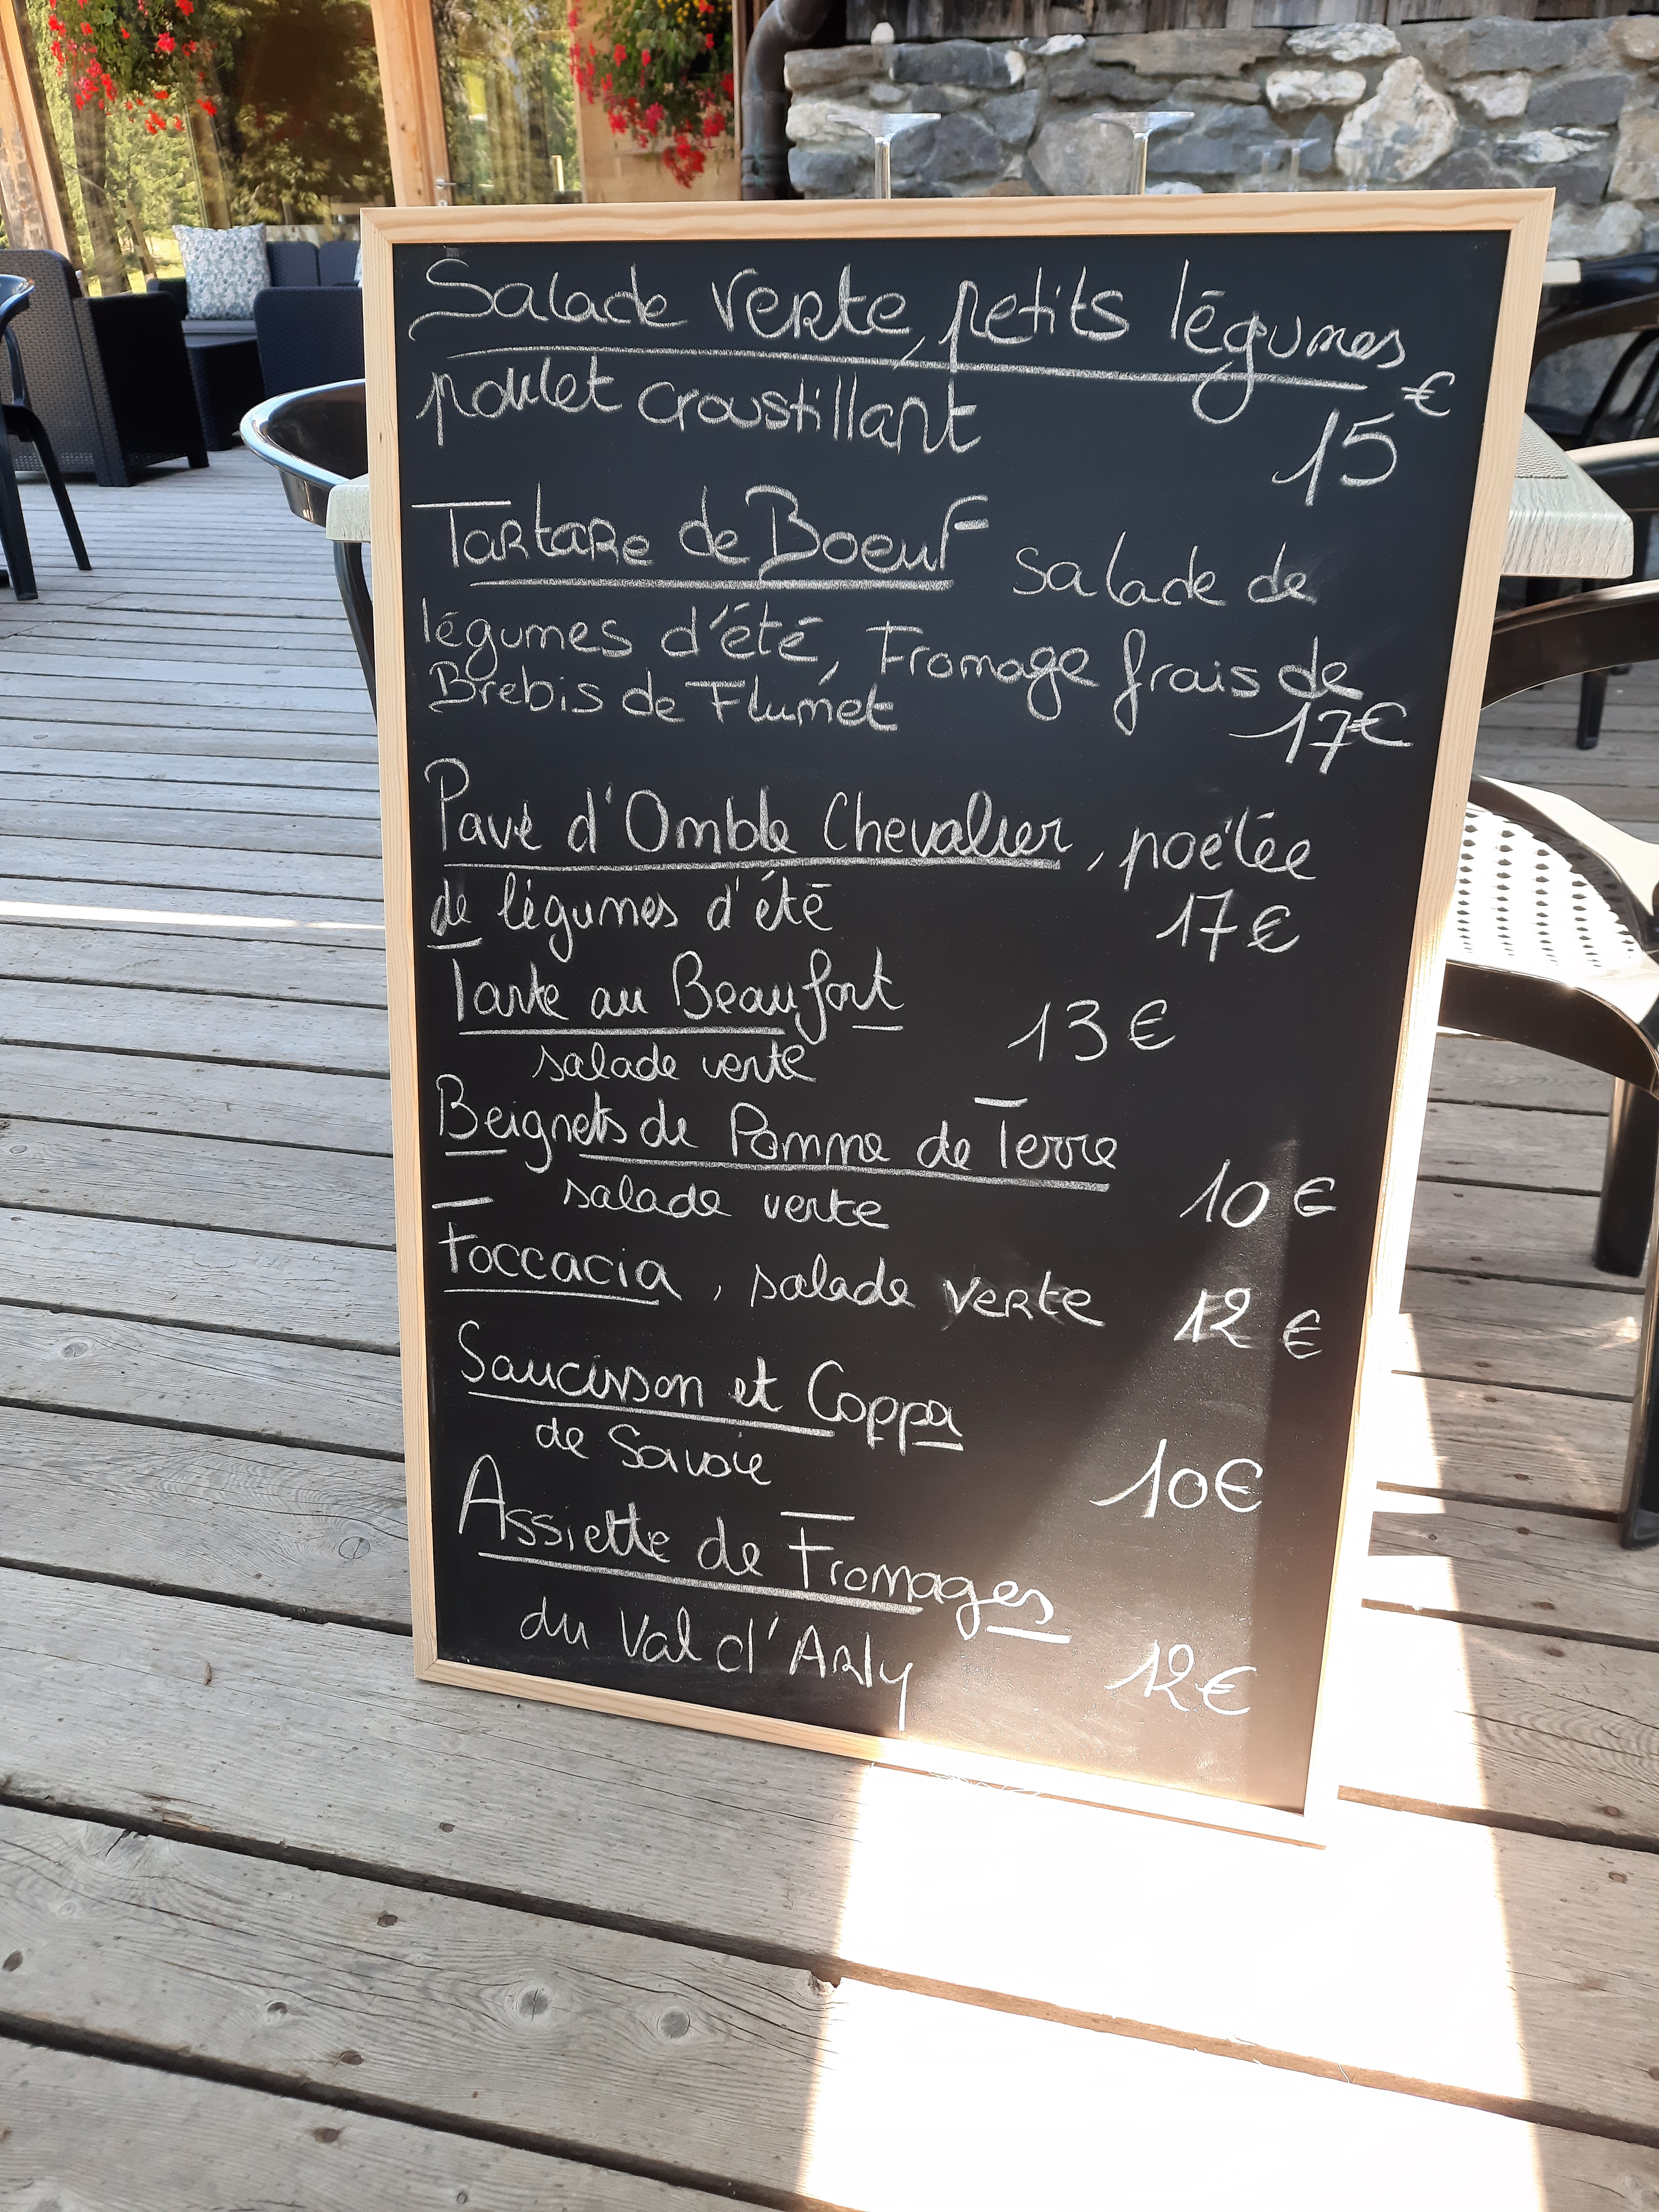 Salade verte, petits légumes
poulet croustillant
15€
Tartare de Boeuf salade de
légumes d'été, Fromage frais de
Brebis de Flumet
17€
Pavé d'Omble Chevalier, poêlée
de légumes d'été 17€
Tarte au Beaufort 13€
salade verte
Beignets de Pomme de Terre
salade verte 10€
Foccacia, salade verte 12€
Saucisson et Coppa
de Savoie 10€
Assiette de Fromages
du Val d'Arly 12€